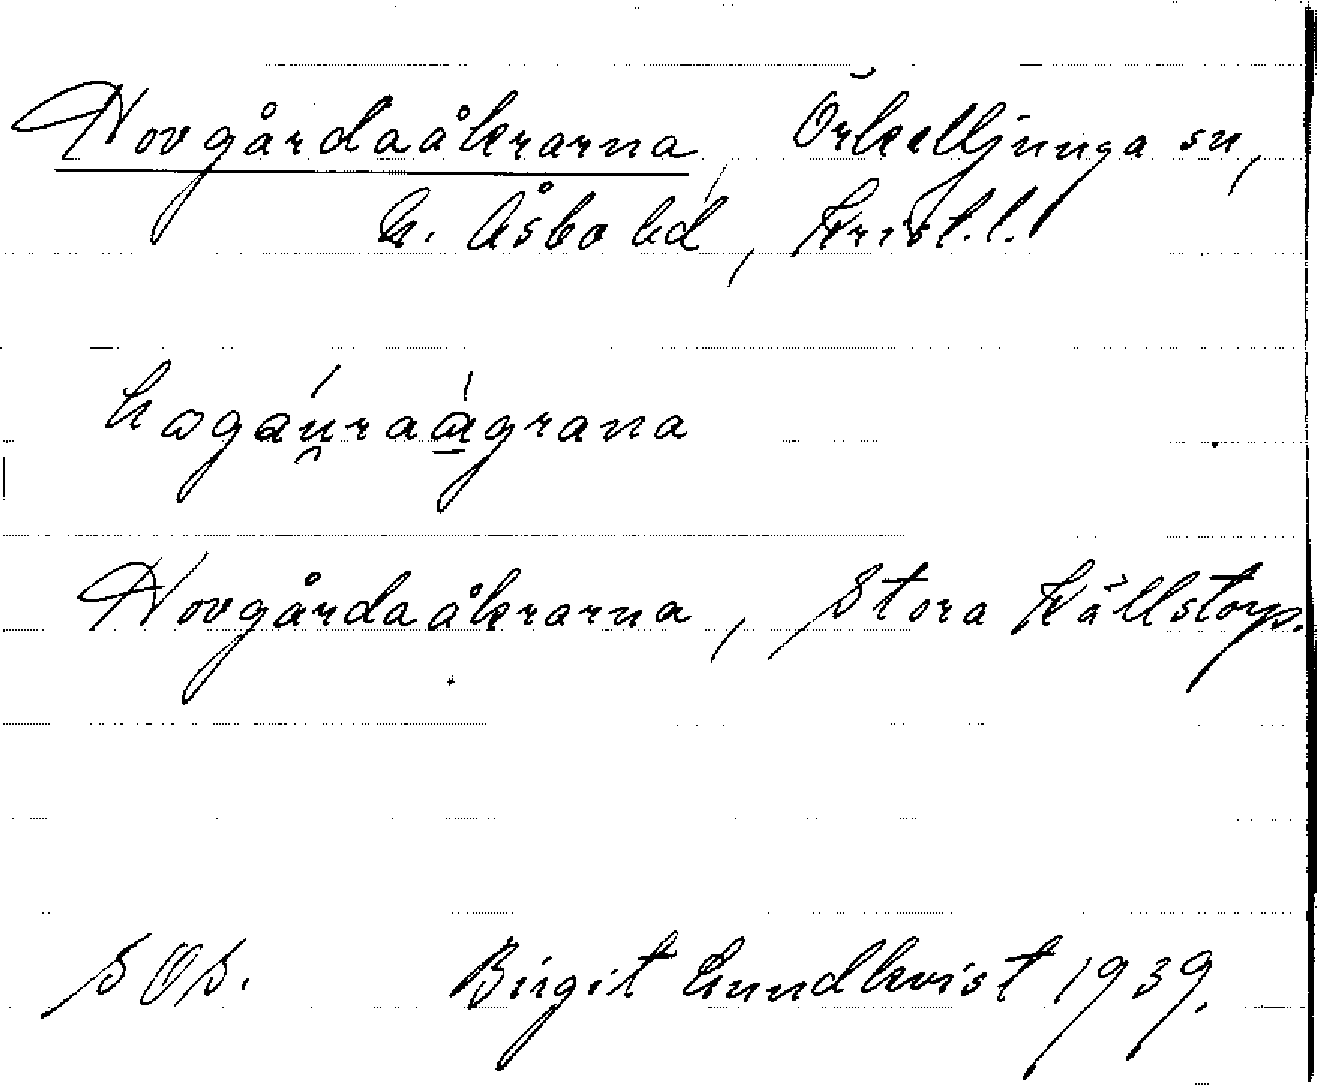 Hovgårdaåkrarna, Örkelljunga sn,
N. Åsbo hd, Krist.l.
hogau̯raagrana
Hovgårdaåkrarna, Stora Källstorp.
SOS. Birgit Lundkvist 1939.